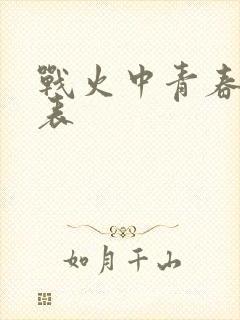 戰火中青春
表
如月千山